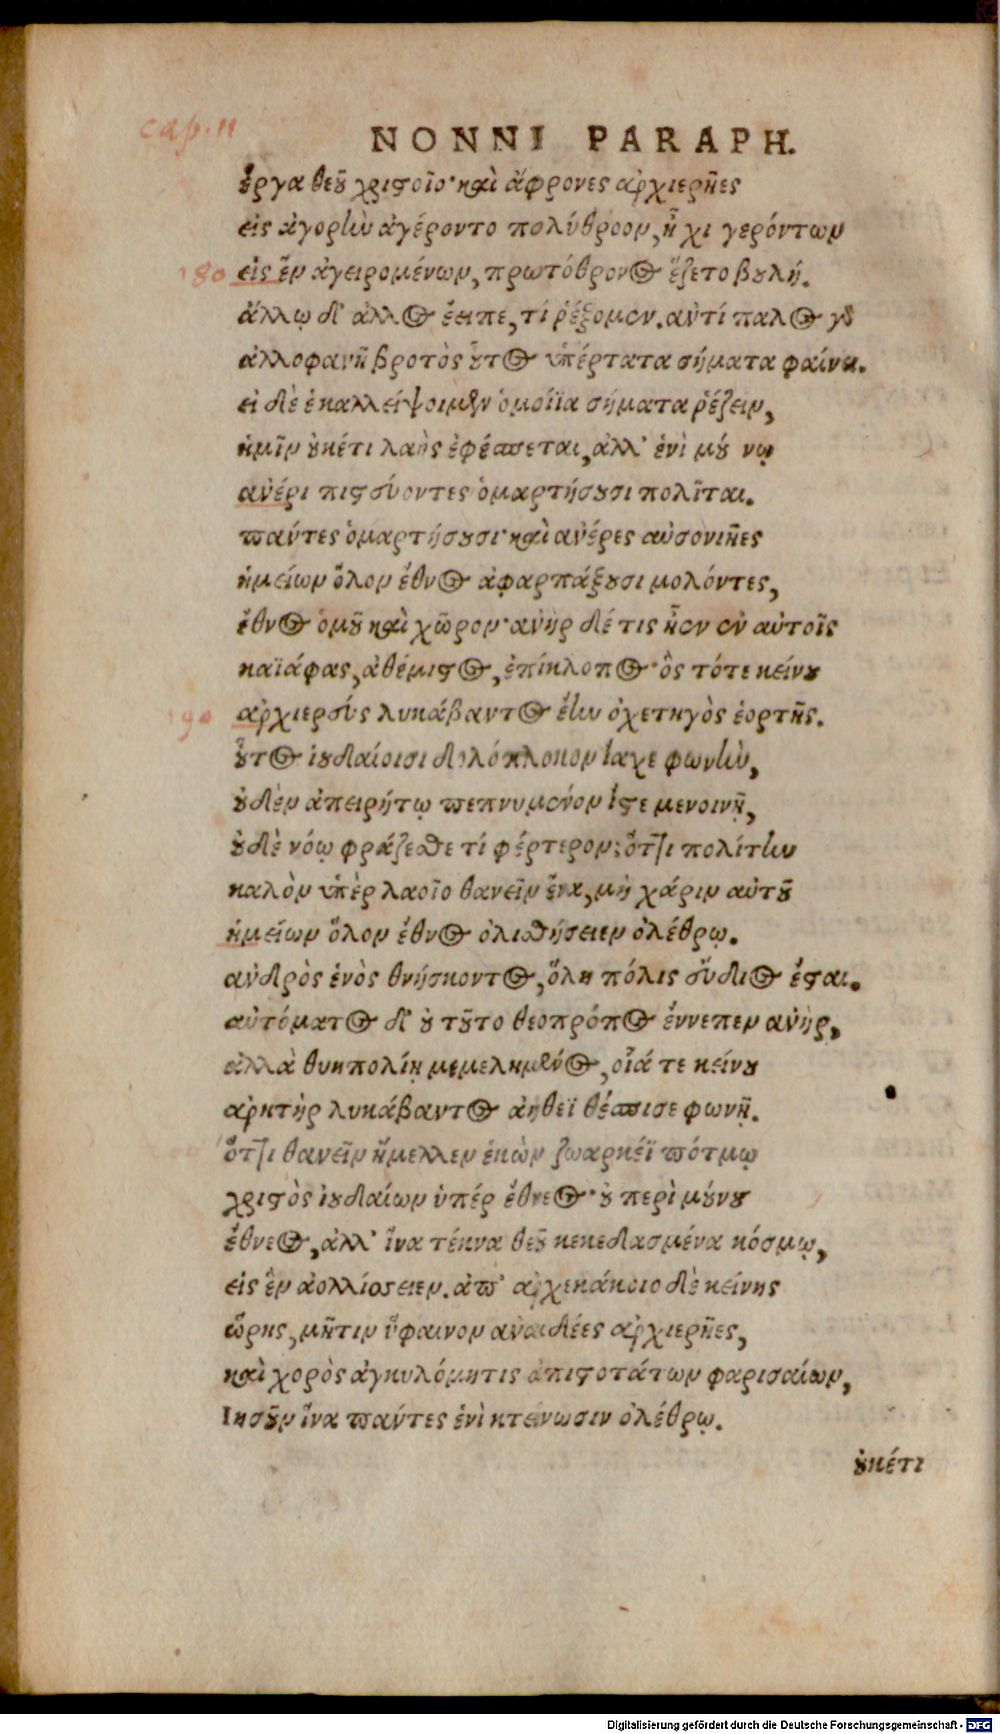 cap. 11
NONNI PARAPH.
ἔργα θεοῦ χριστοῖο· καὶ ἄφρονες ἀρχιερῆες
εἰς ἀγορὴν ἀγέροντο πολύθροον, ἧχι γερόντων
180 εἰς ἓν ἀγειρομένων, πρωτόθρονος ἕζετο βουλή.
ἄλλῳ δ' ἄλλος ἔειπε, τί ῥέξομεν. ἀντίπαλος γὰρ
ἀλλοφανῆ βροτὸς οὗτος ὑπέρτατα σήματα φαίνει.
εἰ δὲ ἐκαλλείψοιμεν ὁμοίϊα σήματα ῥέζειν,
ἡμῖν οὐκέτι λαὸς ἐφέσπεται, ἀλλ' ἑνὶ μούνῳ
ἀνέρι πιστεύοντες ὁμαρτήσουσι πολῖται.
πάντες ὁμαρτήσουσι· καὶ ἀνέρες αὐσονιῆες
ἡμείων ὅλον ἔθνος ἀφαρπάξουσι μολόντες,
ἔθνος ὁμοῦ καὶ χῶρον· ἀνὴρ δέ τις ἦεν ἐν αὐτοῖς
καϊάφας, ἀθέμιστος, ἐπίκλοπος· ὃς τότε κείνου
190 ἀρχιερεύς λυκάβαντος ἔην ὀχετηγὸς ἑορτῆς.
οὗτος ἰουδαίοισι δολόπλοκον ἴαχε φωνὴν,
οὐδὲν ἀπειρήτῳ πεπνυμένον ἴστε μενοινῇ,
οὐδὲ νόῳ φράζεσθε τί φέρτερον; ὅττι πολίτην
καλὸν ὑπὲρ λαοῖο θανεῖν ἕνα, μὴ χάριν αὐτοῦ
ἡμείων ὅλον ἔθνος ὀλισθήσειεν ὀλέθρῳ.
ἀνδρὸς ἑνὸς θνήσκοντος, ὅλη πόλις εὔδιος ἔσται.
αὐτόματος δ' οὐ τοῦτο θεοπρόπος ἔννεπεν ἀνὴρ,
ἀλλὰ θυηπολίῃ μεμελημένος, οἷά τε κείνου
ἀρητὴρ λυκάβαντος ἀήθεϊ θέσπισε φωνῇ.
ὅττι θανεῖν ἤμελλεν ἑκὼν ζωαρκέϊ πότμῳ
χριστὸς ἰουδαίων ὑπέρ ἔθνεος· οὐ περὶ μούνου
ἔθνεος, ἀλλ' ἵνα τέκνα θεοῦ κεκεδασμένα κόσμῳ,
εἰς ἓν ἀολλίσσειεν. ἀπ' ἀρχεκάκοιο δὲ κείνης
ὥρης, μῆτιν ὕφαινον ἀναιδέες ἀρχιερῆες,
καὶ χορὸς ἀγκυλόμητις ἀπιστοτάτων φαρισαίων,
Ἰησοῦν ἵνα πάντες ἑνὶ κτείνωσιν ὀλέθρῳ.
οὐκέτι
Digitalisierung gefördert durch die Deutsche Forschungsgemeinschaft - DFG